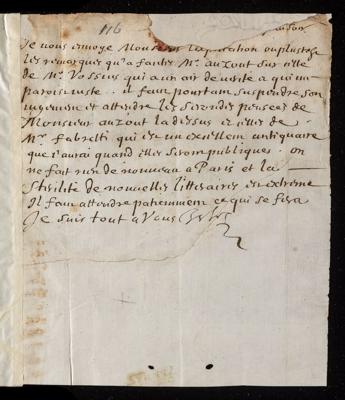 116
Je vous envoye Monsieur l'aplication ou plustost
les remarques qu'a faites Mr. auzout sur celle
de Mr. Vossius qui a un air de verité a qui m
paroist juste. il faut pourtant suspendre son
jugement et attendre les secondes pensées de
Monsieur auzout la dessus et celles de
Mr. fabretti qui est un excellent antiquaire
que j'aurai quand elles seront publiques. on
ne fait rien de nouveau a Paris et la
sterilité de nouvelles litteraires est extreme
Il faut attendre patiemment ce qui se fera
Je suis tout a Vous